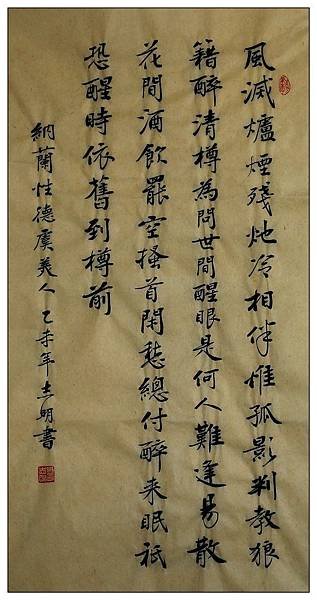 風滅爐煙殘灺冷相伴惟孤影判教狼
籍醉清樽為問世間醒眼是何人難逢易散
花間酒飲罷空搔首閑愁總付醉來眠祇
恐醒時依舊到樽前
納蘭性德虞美人乙未年志明書